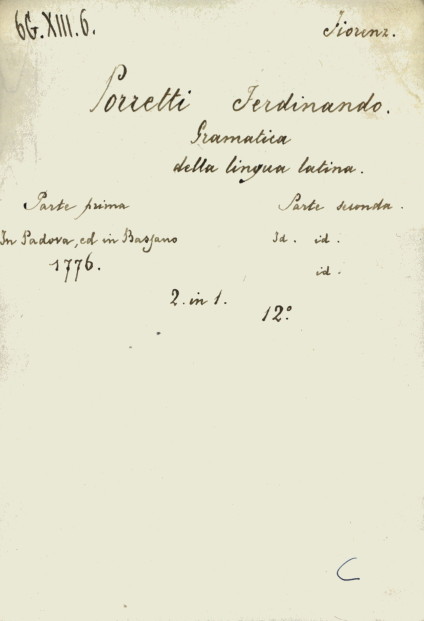 6G.XIII.6. Fiorenz.
Porretti Ferdinando.
Gramatica
della lingua latina.
Parte prima Parte seconda.
In Padova, ed in Bassano Id. id.
1776. id.
2. in 1. 12°
C